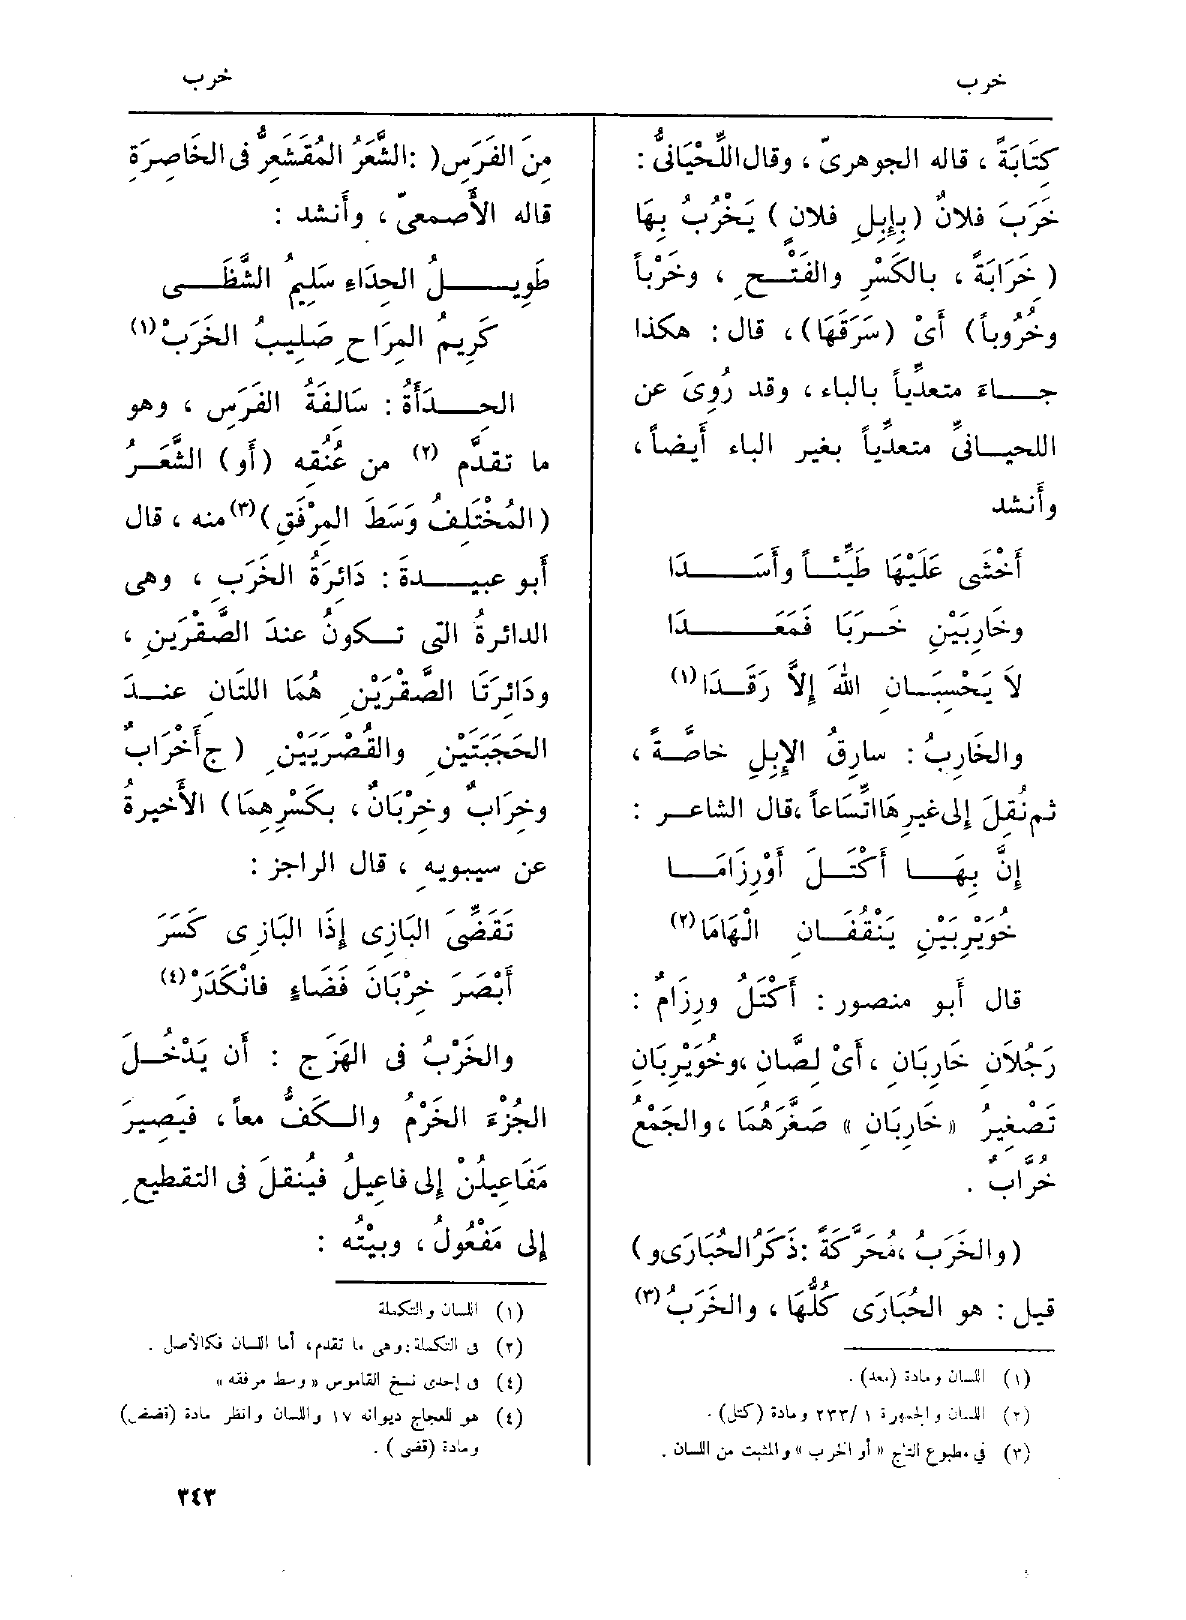 خرب
خرب
كِتَابَةً ، قاله الجوهرىّ ، وقال اللِّحْيَانىُّ :
خَرَبَ فلانٌ (بِإِبِلِ فلانٍ) يَخْرُبُ بِهَا
(خِرَابَةً ، بالكَسْرِ والفَتْـحِ ، وخَرْباً
وخُرُوباً) أَىْ (سَرَقَهَا) ، قال : هكذا
جـاءَ متعدِّياً بالباء ، وقد رُوِىَ عن
اللحيـانىِّ متعدِّياً بغير الباء أَيضاً ،
وأَنشد
أَخْشَى عَلَيْهَا طَيِّئـاً وأَسَـدَا
وخَارِبَيْنِ خَـرَبَا فَمَعَـدَا
لاَ يَحْسِبَـانِ اللهَ إِلاَّ رَقَـدَا(١)
والخَارِبُ : سارِقُ الإِبِلِ خاصَّـةً ،
ثم نُقِلَ إِلى غيرِهَا اتِّسَاعاً ، قال الشاعـر :
إِنَّ بِهَـا أَكْتَـلَ أَوْ رِزَامَـا
خُوَيْرِبَيْنِ يَنْقُفَـانِ الْهَامَا(٢)
قال أَبو منصور : أَكْتَلُ ورِزَامٌ :
رَجُلاَنِ خَارِبَانِ ، أَىْ لِصَّانِ ، وخُوَيْرِبَانِ
تَصْغِيرُ « خَارِبَانِ » صَغَّرَهُمَا ، والجَمْعُ
خُرَّابٌ .
(والخَرَبُ ، مُحَرَّكَةً : ذَكَرُ الحُبَارَى و)
قيل : هو الحُبَارَى كُلُّهَا ، والخَرَبُ(٣)
(١) اللسان ومادة (معد) .
(٢) اللسان والجمهرة ١ /٢٣٣ ومادة (كتل) .
(٣) فى مطبوع التاج « أو الخرب » والمثبت من اللسان .
مِنَ الفَرَسِ( : الشَّعَرُ المُقْشَعِرُّ فى الخَاصِرَةِ
قاله الأَصمعىّ ، وأَنشد :
طَوِيـلُ الحِدَاءِ سَلِيمُ الشَّظَـى
كَرِيمُ المِرَاحِ صَلِيبُ الخَرَبْ(١)
الحِـدَأَةُ : سَالِفَةُ الفَرَسِ ، وهو
ما تقدَّم (٢) من عُنُقِه (أَو) الشَّعَـرُ
(المُخْتَلِفُ وَسَطَ المِرْفَقِ)(٣) منه ، قال
أَبو عبيـدةَ : دَائِرَةُ الخَرَبِ ، وهى
الدائرةُ التى تـكونُ عندَ الصَّقْرَينِ ،
ودَائِرَتَا الصَّقْرَيْنِ هُمَا اللتَانِ عنـدَ
الحَجَبَتَيْنِ والقُصْرَيَيْنِ (ج أَخْرَابٌ
وخِرَابٌ وخِرْبَانٌ ، بكَسْرِهِمَا) الأَخيرةُ
عن سيبويهِ ، قال الراجز :
تَقَضِّىَ البَازِى إِذَا البَازِى كَسَرَ
أَبْصَرَ خِرْبَانَ فَضَاءٍ فانْكَدَرْ(٤)
والخَرْبُ فى الهَزَجِ : أَن يَدْخُـلَ
الجُزْءَ الخَرْمُ والـكَفُّ معاً ، فيَصِيرَ
مَفَاعِيلُنْ إِلى فاعِيلُ فيُنقلَ فى التقطيعِ
إِلى مَفْعُولُ ، وبيْتُه :
(١) اللسان والتكملة
(٢) فى التكملة : وهى ما تقدم، أما اللسان فكالأصل .
(٤) فى إحدى نسخ القاموس « وسط مرفقه »
(٤) هو للعجاج ديوانه ١٧ واللسان وانظر مادة (قضض)
ومادة (قضى) .
٣٤٣